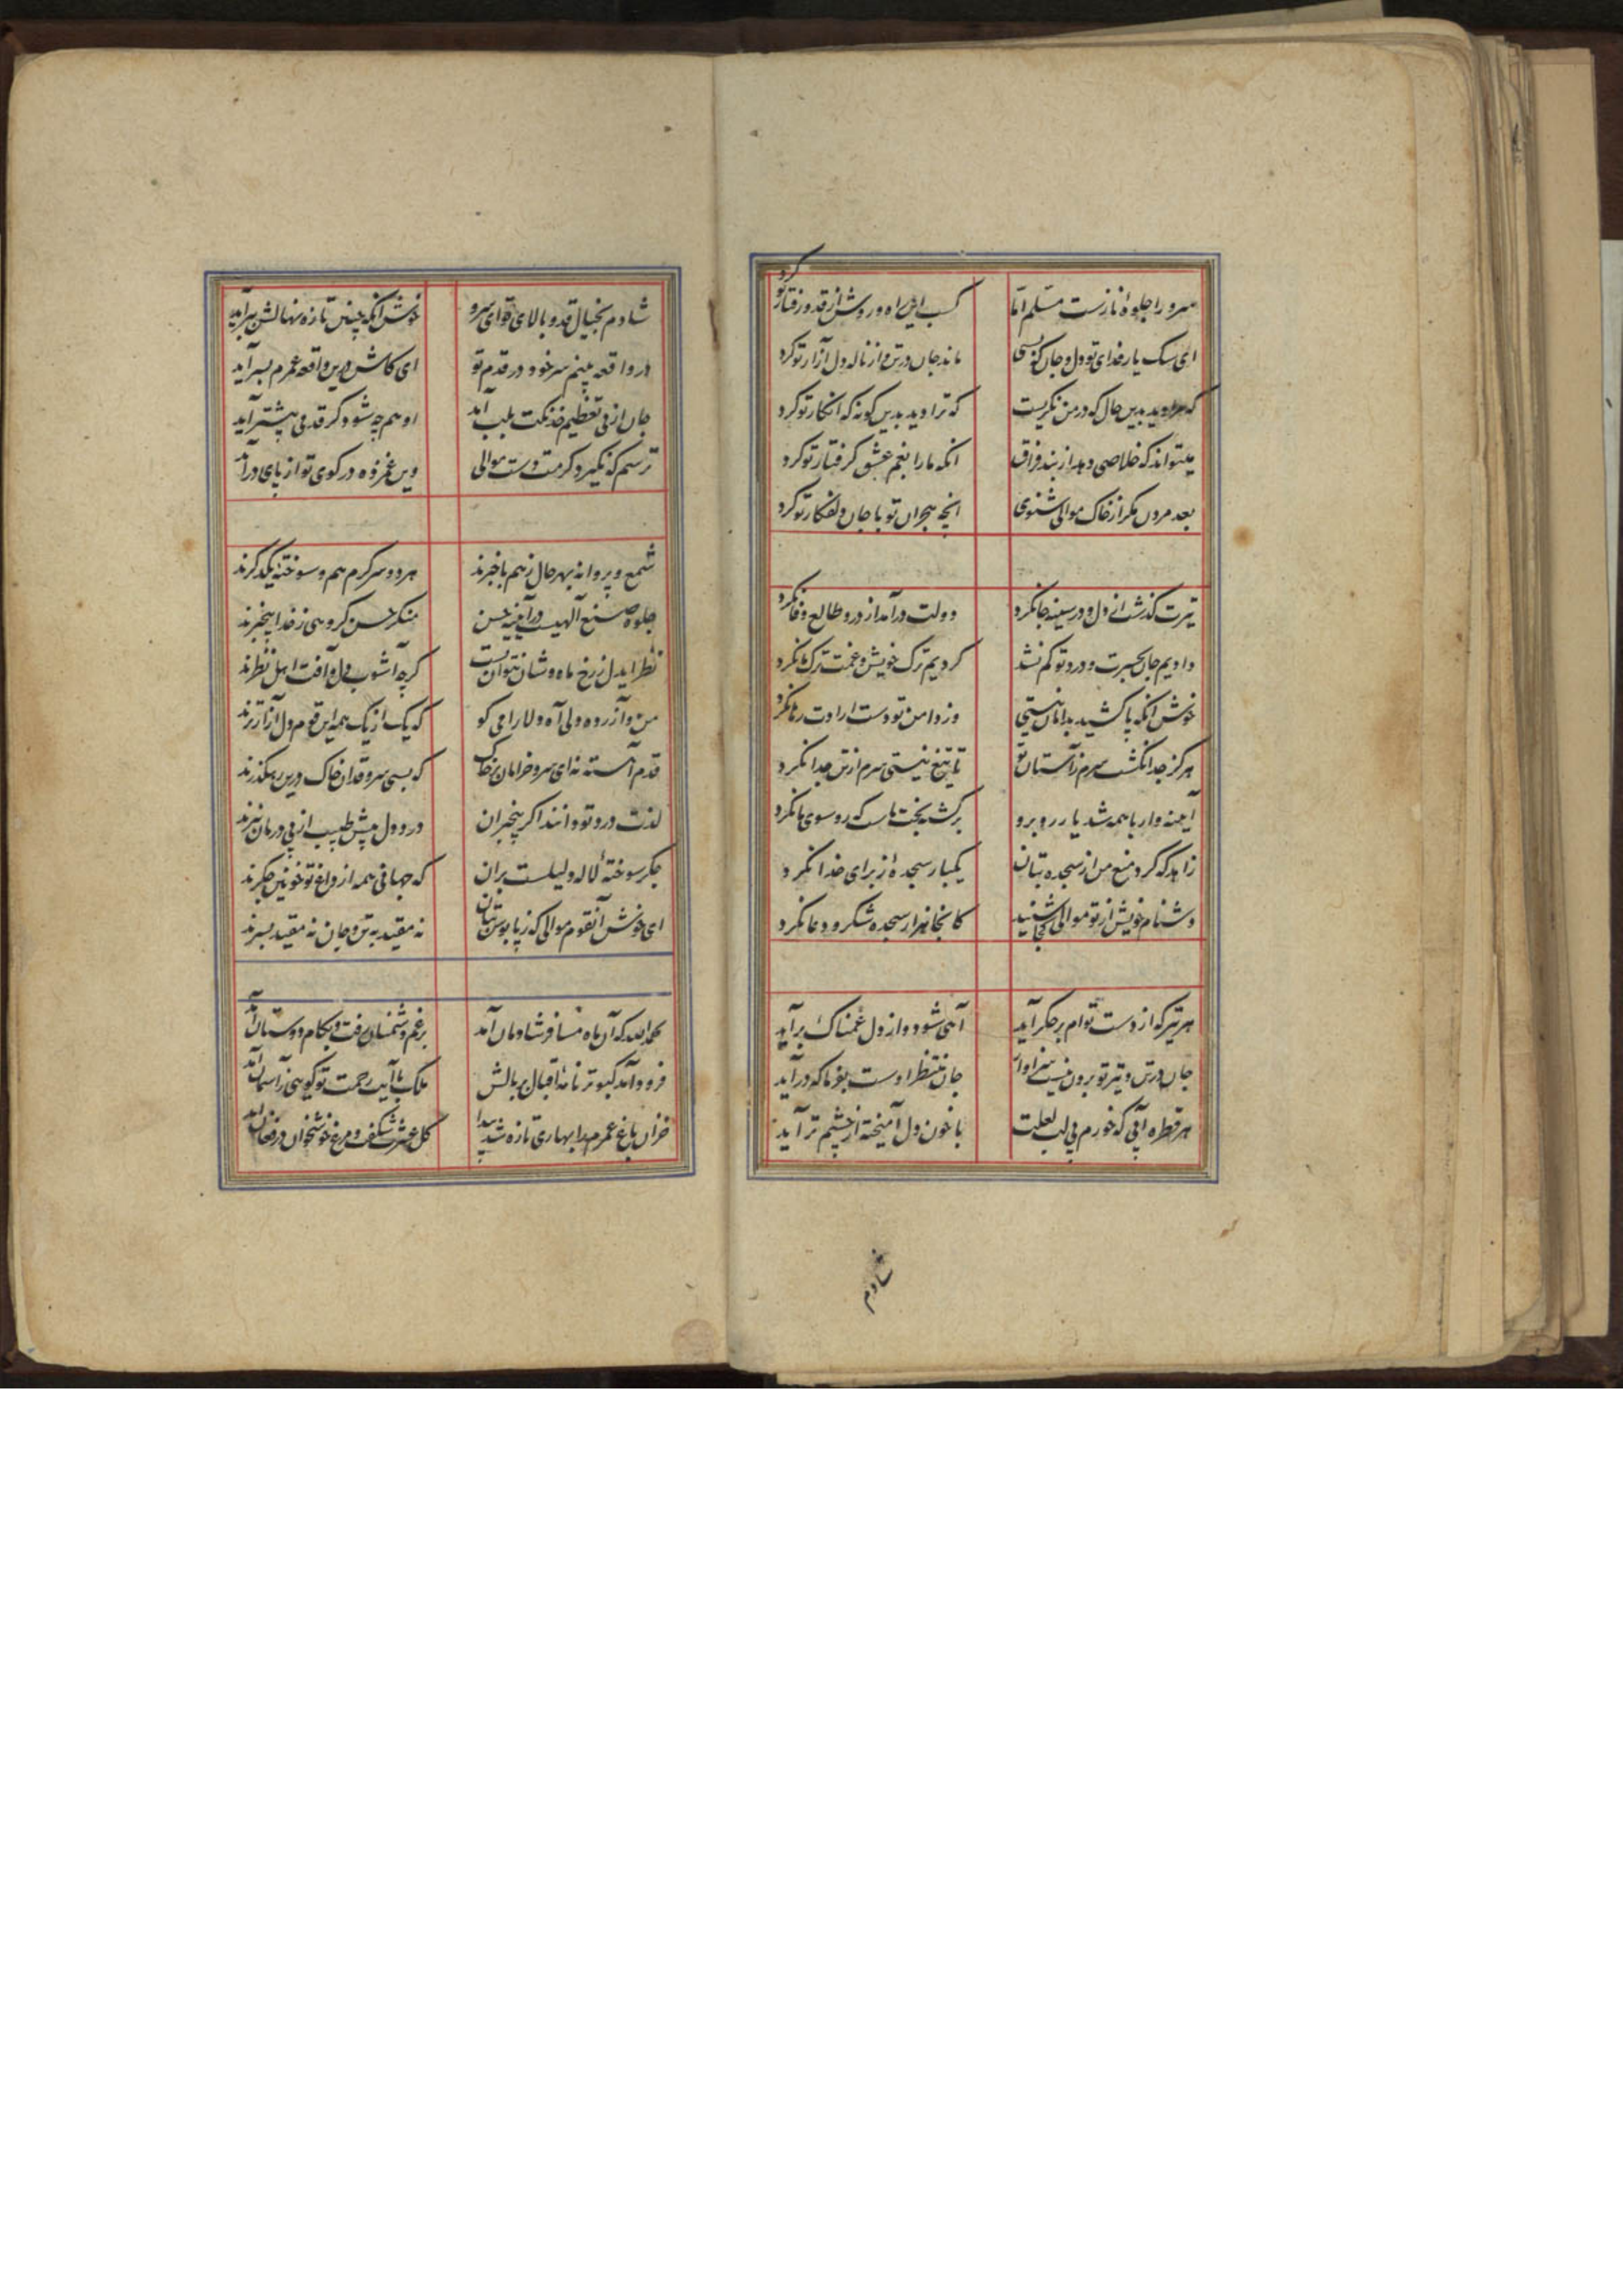 سرو را جلوه نازست مسلم اما کسب این راه و روش از قد و رفتار تو کرد
ای سک یار فدای تو دل و جان کسی ماند جان در تن و از ناله دل آزار تو کرد
که مرا دید بدین حال که در من نکریست که ترا دید بدین کونه که انکار تو کرد
میتواند که خلاصی دهد از بند فراق انکه ما را بغم عشق کرفتار تو کرد
بعد مردن مکر از خاک موالی شنوی انچه هجران تو با جان دلفکار تو کرد
تیرت کذشت از دل و در سینه جا نکرد دولت درآمد از در و طالع وفا نکرد
دادیم جان بحسرت و درد تو کم نشد کردیم ترک خویش و غمت ترک ما نکرد
خوش انکه پا کشید بدامان نیستی وز دامن تو دست ارادت رها نکرد
هرکز جدا نکشت سرم ز آستان تو تا تیغ نیستی سرم از تن جدا نکرد
آیینه وار با همه شد یار روبرو برکشته بخت ماست که رو سوی ما نکرد
زاهد که کرد منع من از سجده بتان یکبار سجده از برای خدا نکرد
دشنام خویش از تو موالی کجا شنید کانجا هزار سجده شکر و دعا نکرد
هر تیر که از دست توام بر جکر آید آهی شود و از دل غمناک برآید
جان در تن و تیر تو برون نیست سزاوار جان منتظر اوست بفرما که درآید
هر قطره آبی که خورم بی لب لعلت با خون دل آمیخته از چشم تر آید
شادم
شادم بخیال قد و بالای تو ای سرو خوش آنکه چنین تازه نهالش ببر آید
در واقعه بینم سر خود در قدم تو ای کاش درین واقعه عمرم بسر آید
جان از پی تعظیم خدنکت بلب آمد او هم چه شود کر قدمی پیشتر آید
ترسم که نکیرد کرمت دست موالی وین غمزده در کوی تو از پای درآید
شمع و پروانه بهر حال ز هم باخبرند هر دو سرکرم هم و سوخته یکدکرند
جلوه صنع آلهیست در آیینه حسن منکر حسن کروهی ز خدا بیخبرند
نظر ایدل ز رخ ماه وشان نتوان بست کرچه آشوب دل و آفت اهل نظرند
من و آزرده دلی آه دلارامی کو که یک از یک همه این قوم دل آزارترند
قدم آهسته نه ای سرو خرامان بر خاک که بسی سرو قدان خاک درین رهکذرند
لذت درد تو دانند اکر بیخبران درد دل پیش طبیب از پی درمان نبرند
جکر سوخته لاله دلیلست بران که جهانی همه از داغ تو خونین جکرند
ای خوش آنقوم موالی که ز پابوس بتان نه مقید به تن و جان نه مقید بسرند
بحمدالله که آن ماه مسافر شادمان آمد برغم دشمنان رفت و بکام دوستان آمد
فرود آمد کبوتر نامه اقبال بر بالش ملک با آیت رحمت تو کویی ز آسمان آمد
خزان باغ عمرم را بهاری تازه شد پیدا کل عشرت شکفت و مرغ خوشخوان در فغان آمد